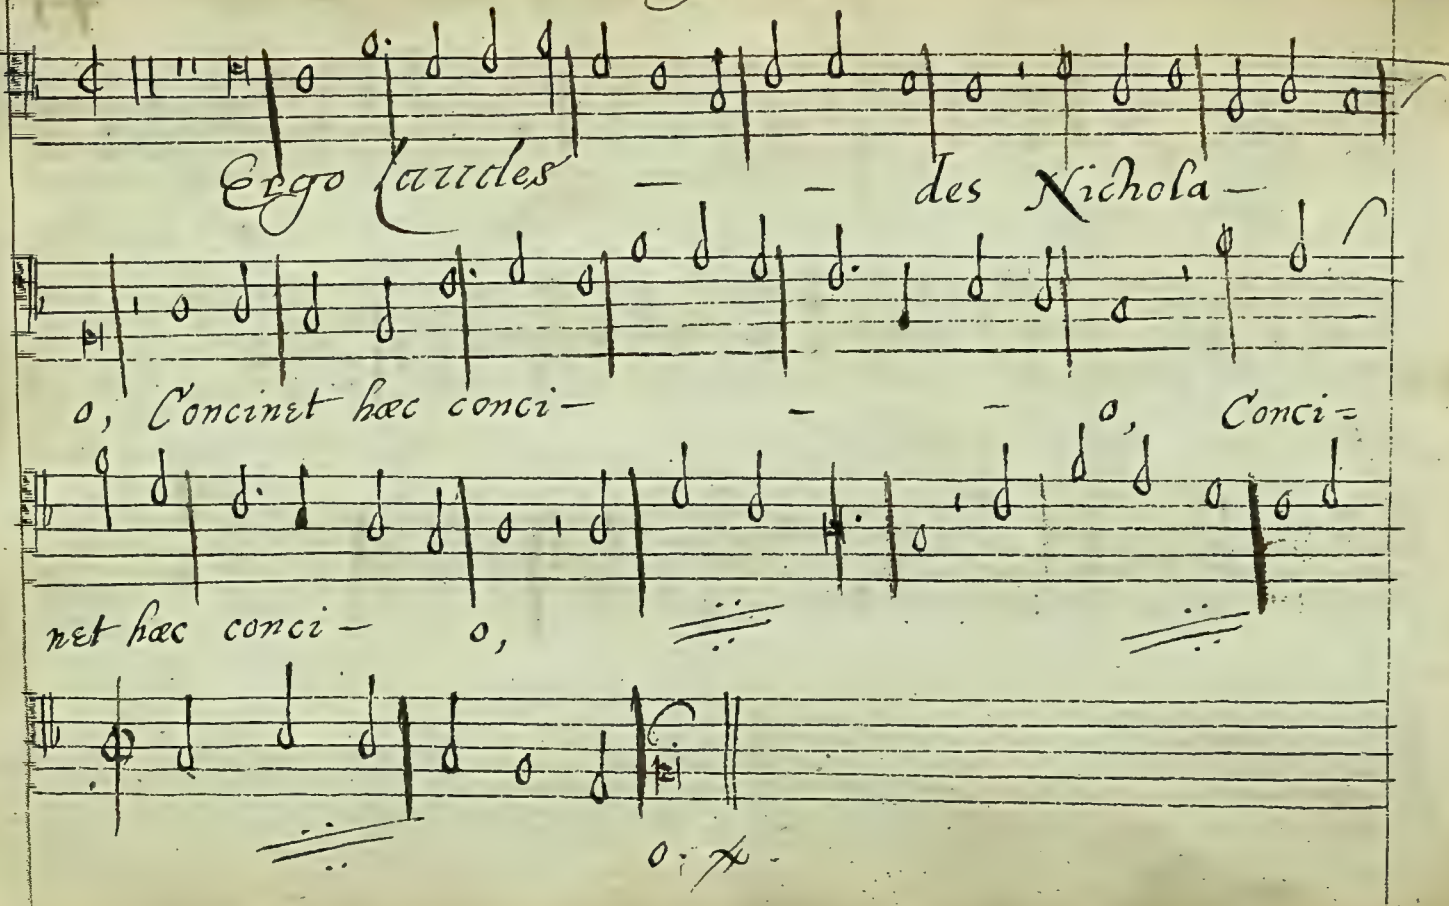 Ergo laudes — — des Nichola —
o, Concinet hæc conci — — — o, Conci=
net hæc conci — o,
o.